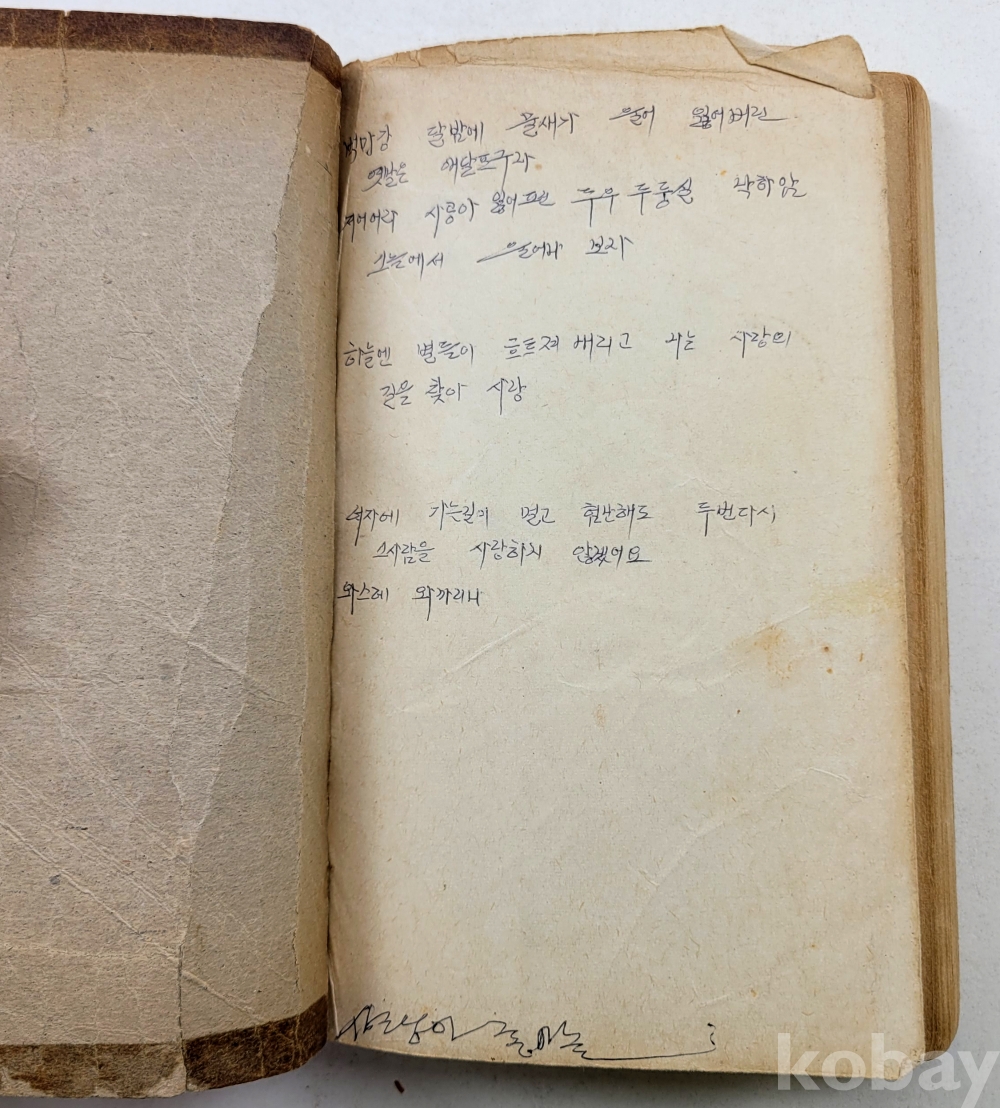 백마강 달밤에 물새가 울어 잃어버린
옛날은 애달프구나
저어라 사공아 잃어프린 두우 두둥실 낙하암
그늘에서 울어나 보자
하늘엔 별들이 흐트져 버리고 나는 사랑의
길을 찾아 사랑
여자에 가는길이 멀고 험난해도 두번다시
그사람을 사랑하지 않겠어요
와스레 와까리니
kobay